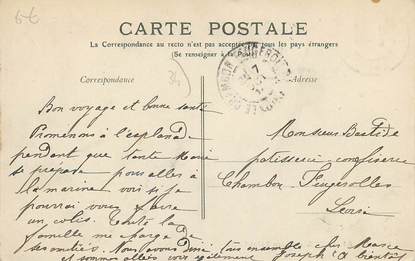 6€
CARTE POSTALE
La Correspondance au recto n'est pas acceptée par tous les pays étrangers
(Se renseigner à la Poste)
Correspondance
Adresse
Bon voyage et bonne santé
Promenons à l'esplanade
pendant que tante Marie
se prépare pour aller à
la marine voir si je
pourrai vous faire
un colis. Toute la
famille me charge de
ses amitiés. Nous avons diné tous ensemble chez Marie
et sommes allés voir également Joseph. A bientôt
Monsieur Bastide
patisserie confiserie
Chambon-Feugerolles
Loire